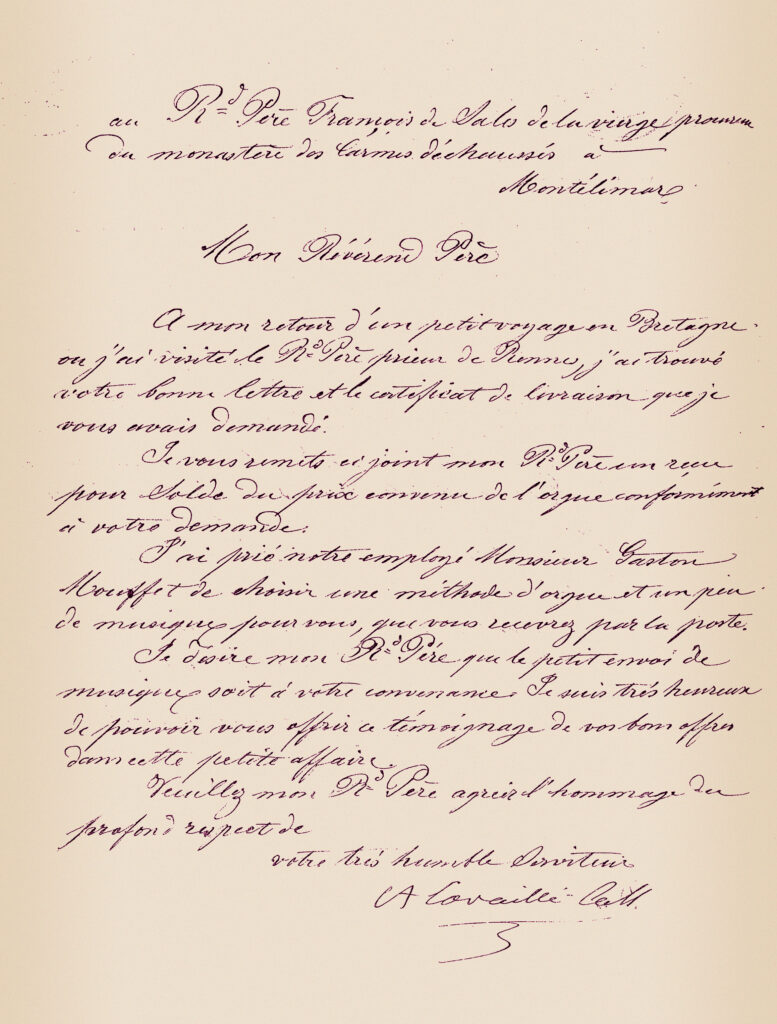 au Rd Père François de Sales de la vierge procureur
du monastère des Carmes déchaussés à
Montélimar
Mon Révérend Père
A mon retour d'un petit voyage en Bretagne
ou j'ai visité le Rd Père prieur de Rennes, j'ai trouvé
votre bonne lettre et le certificat de livraison que je
vous avais demandé.
Je vous remets ci joint mon Rd Père un recu
pour solde du prix convenu de l'orgue conformément
à votre demande.
J'ai prié notre employé Monsieur Gaston
Mouffet de choisir une méthode d'orgue et un peu
de musique pour vous, que vous recevrez par la poste.
Je désire mon Rd Père que le petit envoi de
musique soit à votre convenance. Je suis très heureux
de pouvoir vous offrir ce témoignage de vos bons offres
dans cette petite affaire.
Veuillez mon Rd Père agréer l'hommage du
profond respect de
votre très humble Serviteur
A Cavaillé-Coll